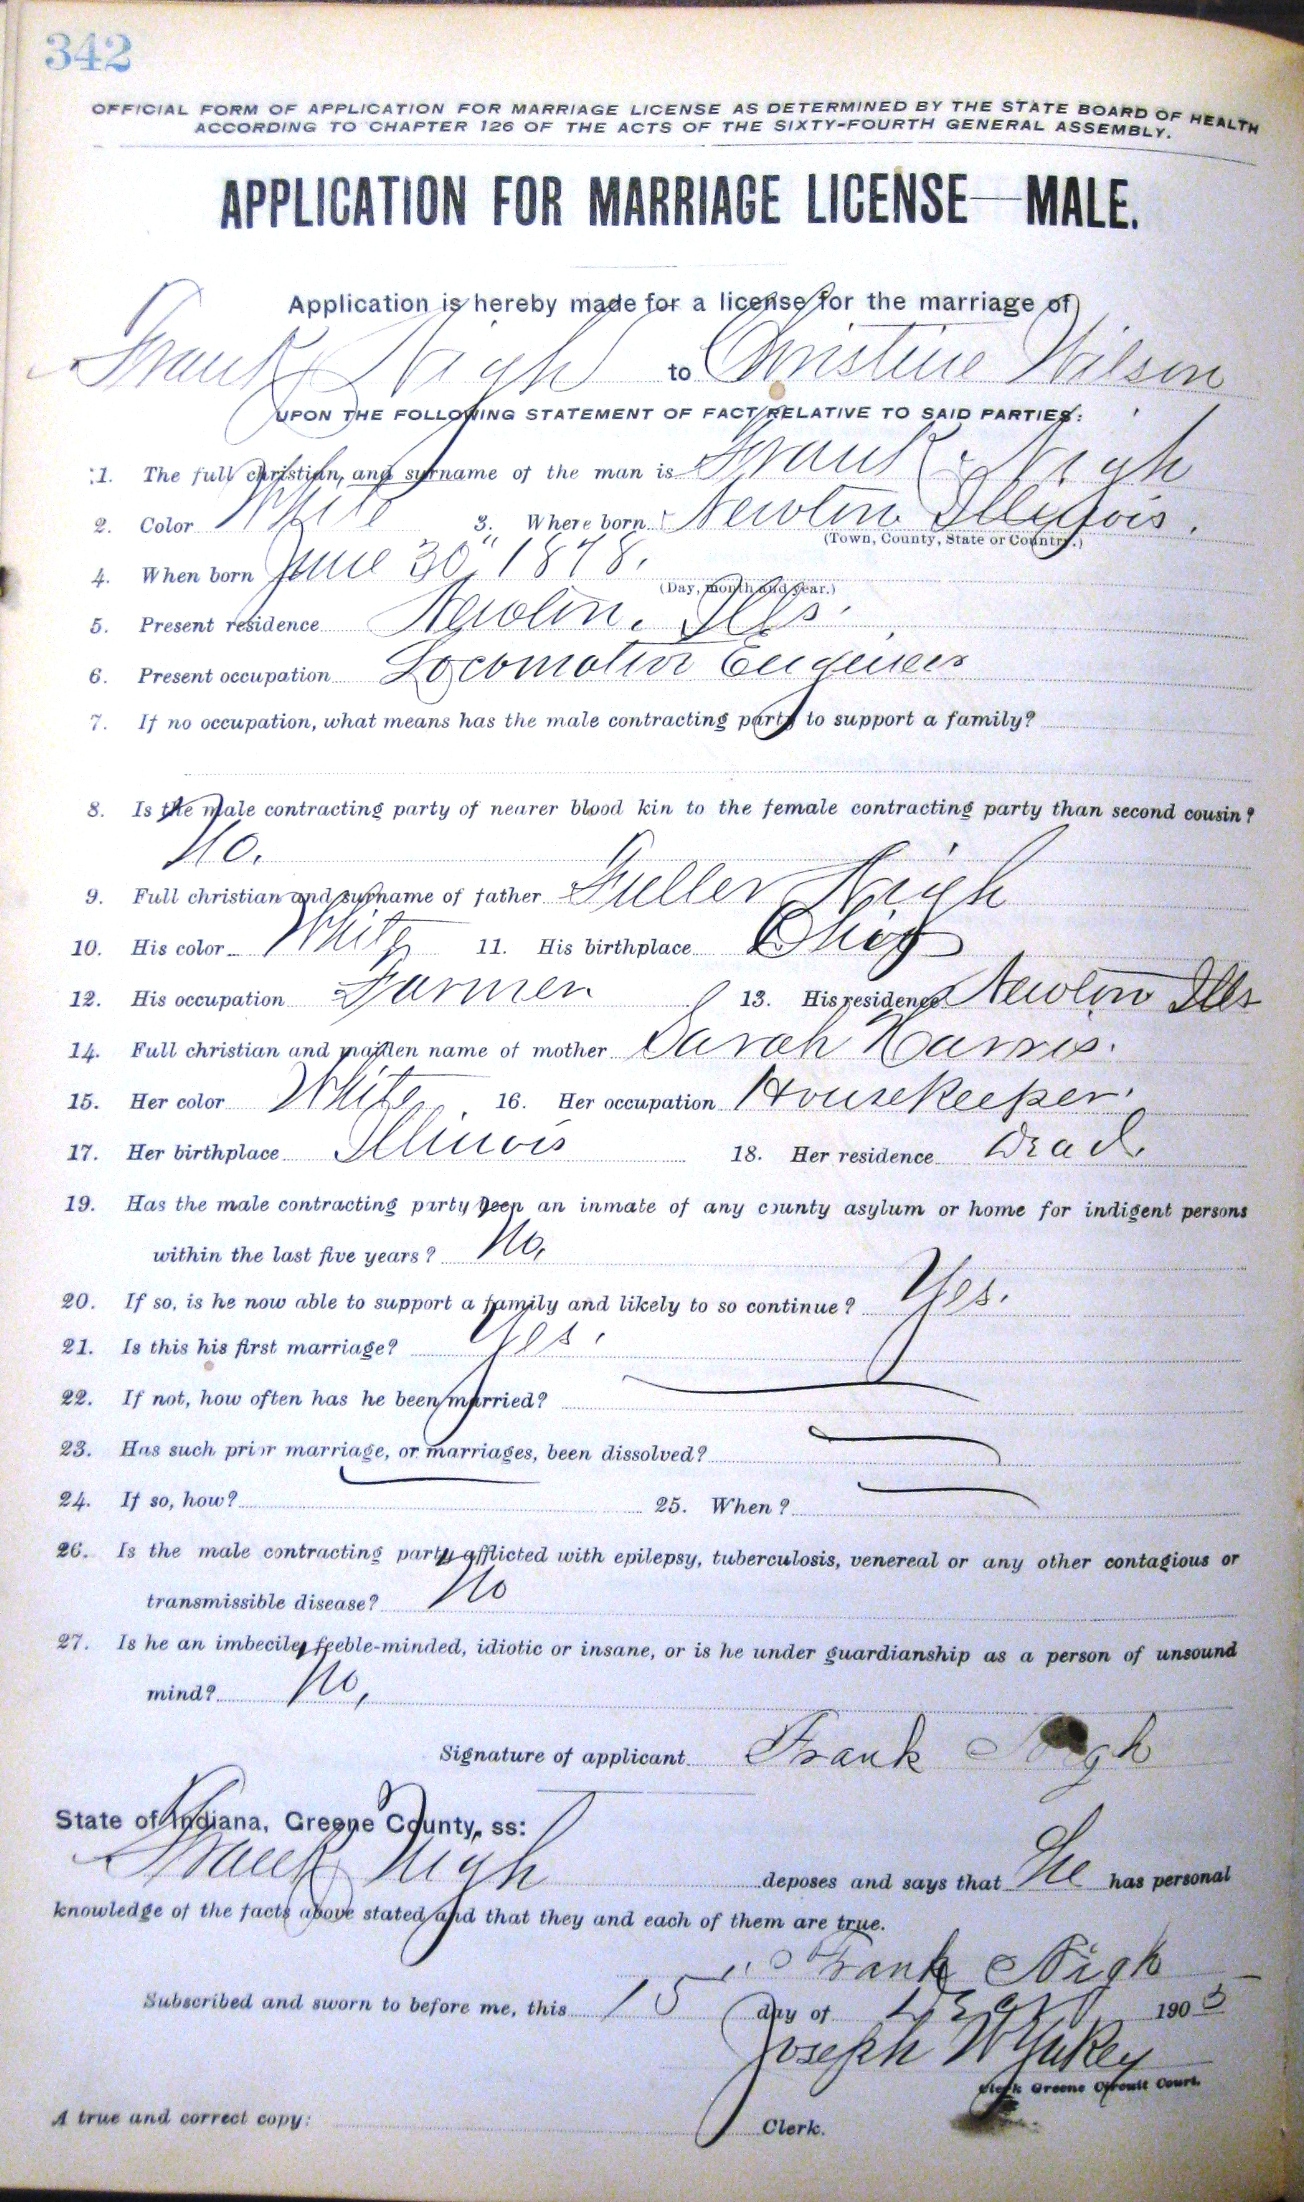 342
OFFICIAL FORM OF APPLICATION FOR MARRIAGE LICENSE AS DETERMINED BY THE STATE BOARD OF HEALTH
ACCORDING TO CHAPTER 126 OF THE ACTS OF THE SIXTY-FOURTH GENERAL ASSEMBLY.
APPLICATION FOR MARRIAGE LICENSE—MALE.
Application is hereby made for a license for the marriage of
Frank Nigh to Christine Wilson
UPON THE FOLLOWING STATEMENT OF FACT RELATIVE TO SAID PARTIES:
1. The full christian and surname of the man is Frank Nigh
2. Color White 3. Where born Newton Illinois.
(Town, County, State or Country.)
4. When born June 30" 1878.
(Day, month and year.)
5. Present residence Newton. Ills.
6. Present occupation Locomotive Engineer
7. If no occupation, what means has the male contracting party to support a family?
8. Is the male contracting party of nearer blood kin to the female contracting party than second cousin?
No.
9. Full christian and surname of father Fuller Nigh
10. His color White 11. His birthplace Ohio
12. His occupation Farmer 13. His residence Newton Ills
14. Full christian and maiden name of mother Sarah Harris.
15. Her color White. 16. Her occupation Housekeeper.
17. Her birthplace Illinois 18. Her residence Dead.
19. Has the male contracting party been an inmate of any county asylum or home for indigent persons
within the last five years? No,
20. If so, is he now able to support a family and likely to so continue? Yes.
21. Is this his first marriage? Yes.
22. If not, how often has he been married?
23. Has such prior marriage, or marriages, been dissolved?
24. If so, how? 25. When?
26. Is the male contracting party afflicted with epilepsy, tuberculosis, venereal or any other contagious or
transmissible disease? No
27. Is he an imbecile, feeble-minded, idiotic or insane, or is he under guardianship as a person of unsound
mind? No,
Signature of applicant Frank Nigh
State of Indiana, Greene County, ss:
Frank Nigh deposes and says that he has personal
knowledge of the facts above stated and that they and each of them are true.
Frank Nigh
Subscribed and sworn to before me, this 15" day of 1905
Joseph W Yakey
Clerk Greene Circuit Court.
A true and correct copy: Clerk.